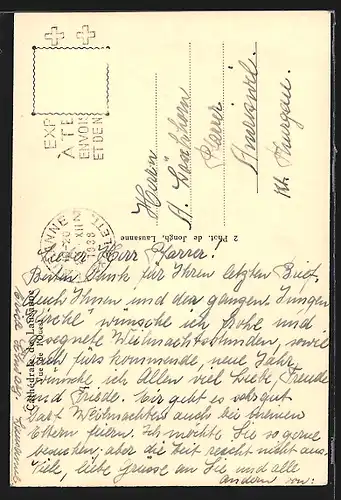 Lieber Herr Pfarrer!
Besten Dank für Ihren letzten Brief.
Auch Ihnen und der ganzen "Jungen
Kirche" wünsche ich, frohe und
gesegnete Weihnachtsstunden, sowie
auch fürs kommende, neue Jahr
wünsche ich Allen viel Liebe, Freude
und Friede. Mir geht es sehr gut
Darf Weihnachten auch bei meinen
Eltern feiern. Ich möchte Sie so gerne
besuchen; aber die Zeit reicht nicht aus.
Viele, liebe Grüsse an Sie und alle
andern von:
Herrn
A.
Pfarrer
Amriswil.
Kt. Thurgau.
2 Phot. de Jongh, Lausanne
Cathédrale de Lausanne
EXP
ATE
ENVOIS
ET DEN
XII
1938